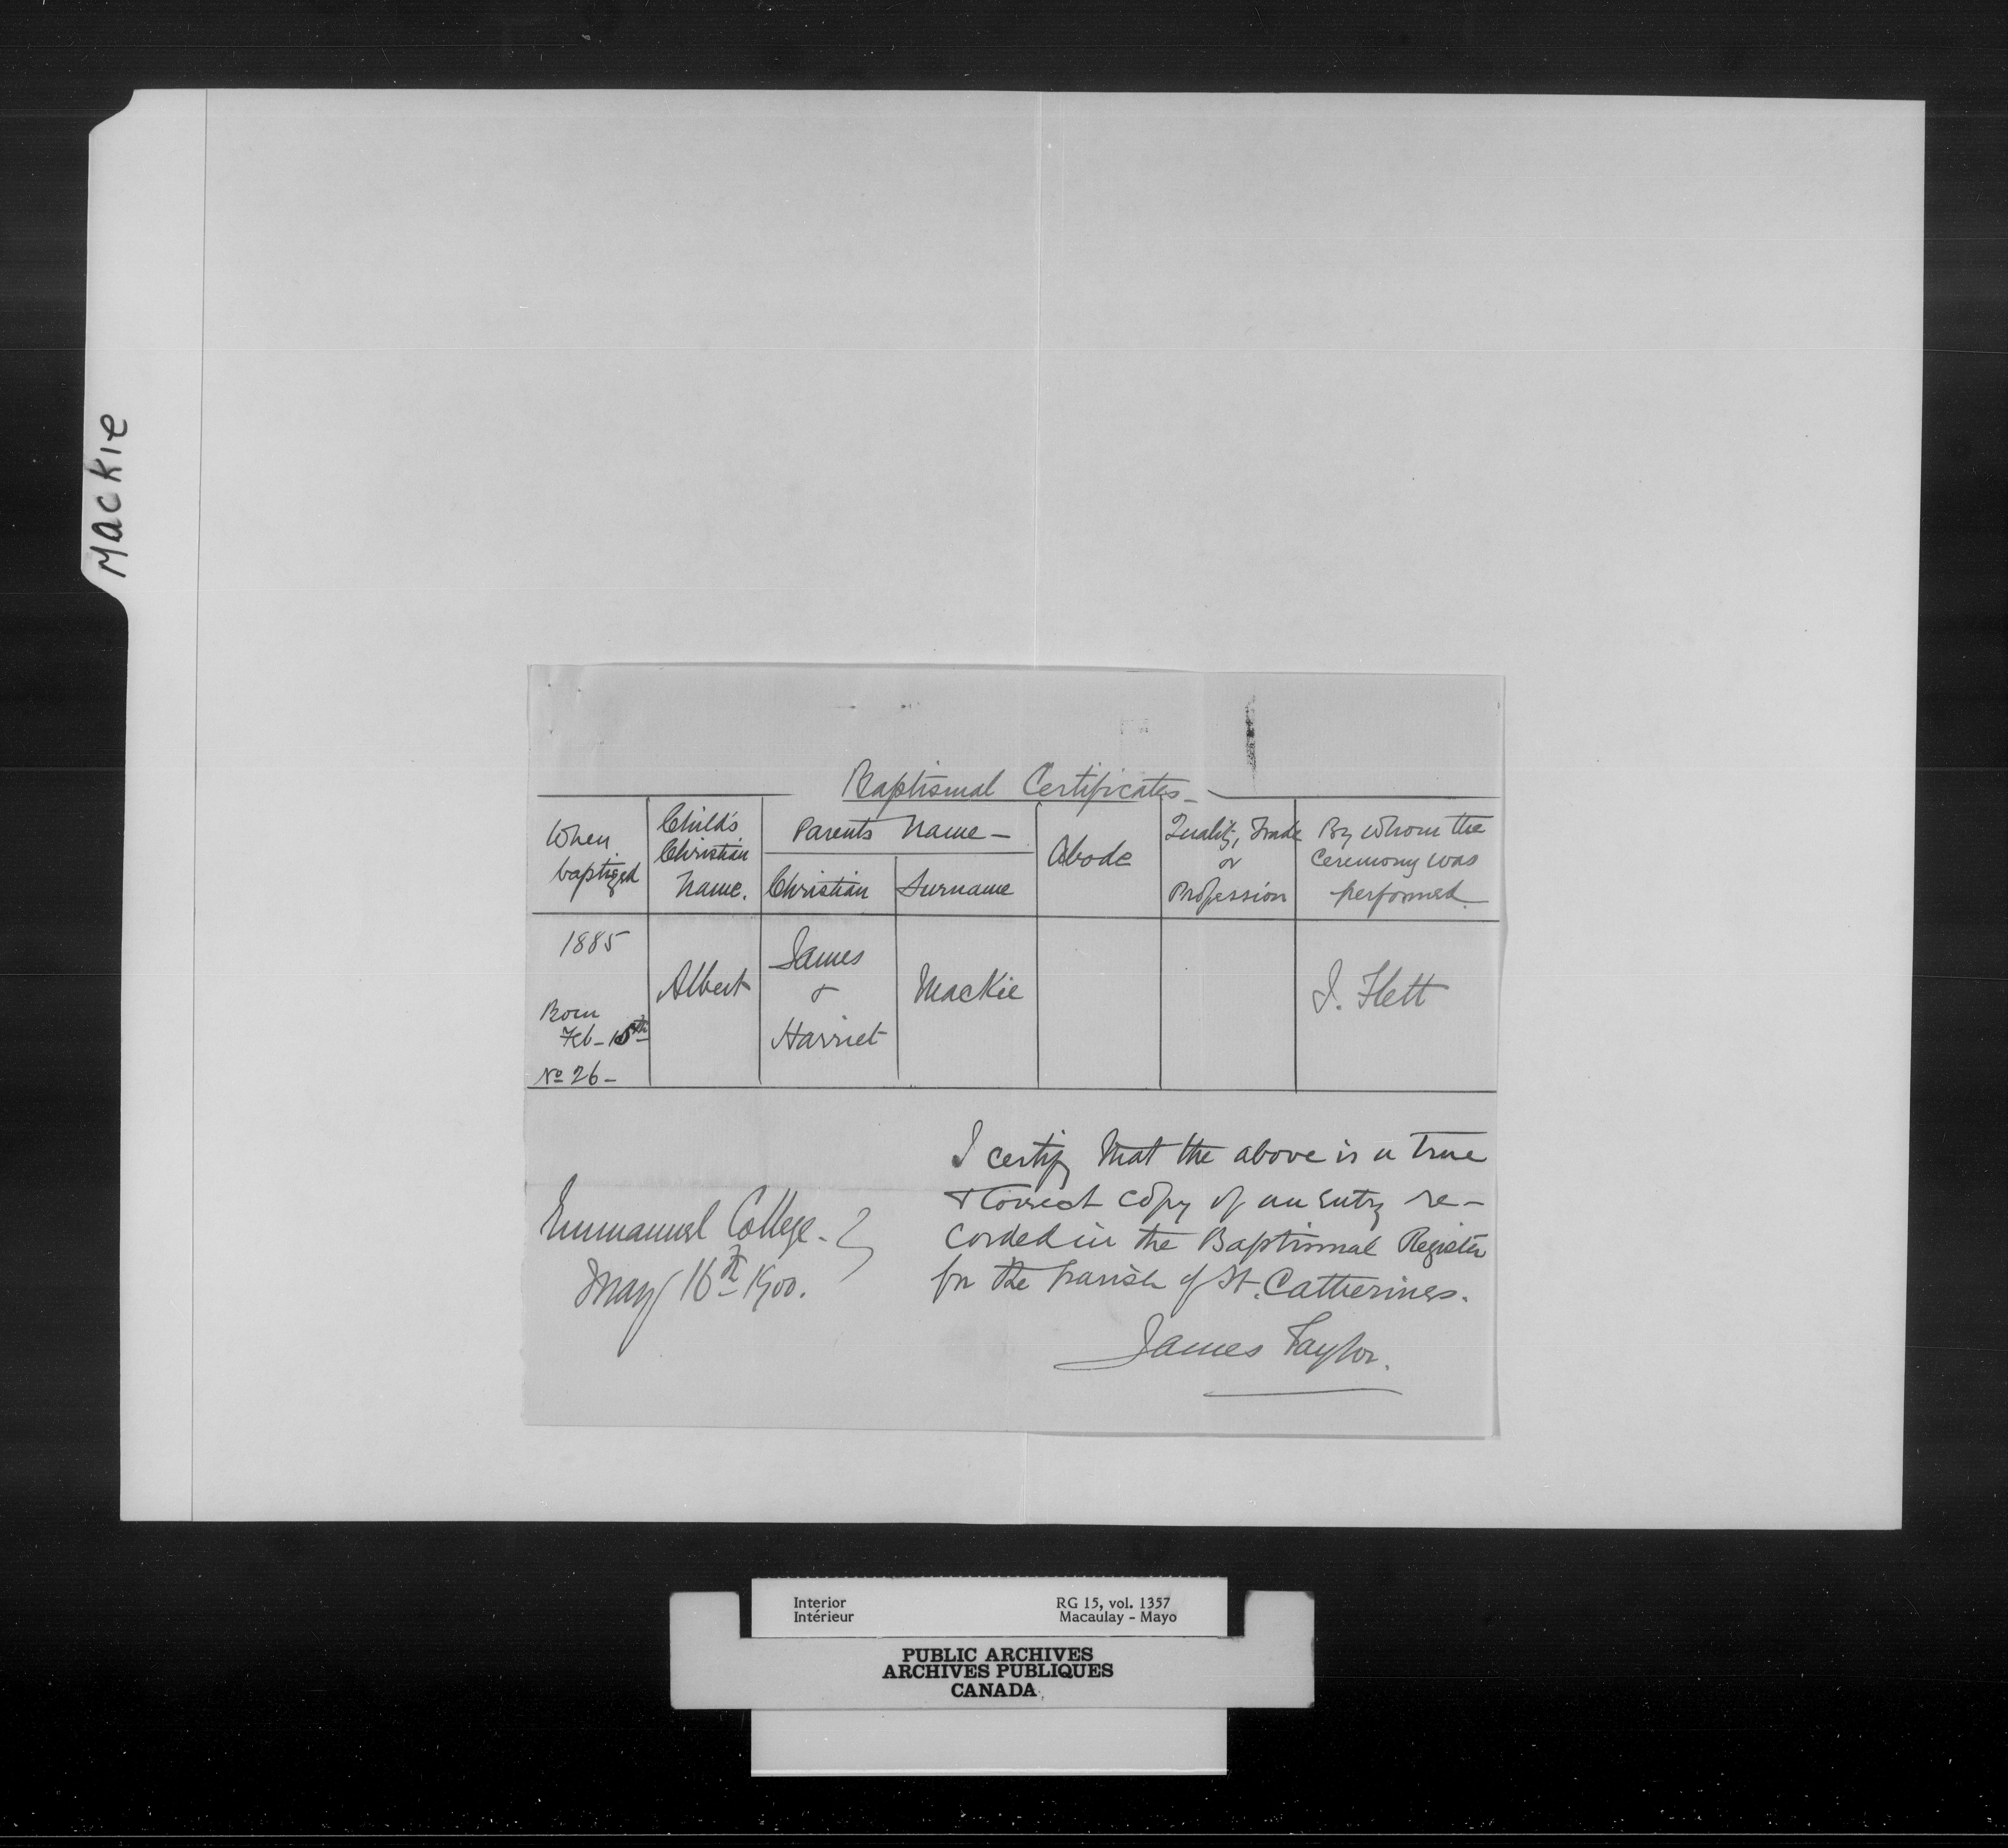 Mackie
Baptismal Certificates
When baptized
Child's Christian Name.
Parents Name
Christian
Surname
Abode
Quality, Trade or Profession
By whom the Ceremony was performed.
1885
Born
Feb - 15th
No 26 -
Albert
James
&
Harriet
Mackie
J. Flett
I certify that the above is a true
& Correct copy of an entry re-
corded in the Baptismal Register
for the Parish of St. Catherines.
James Taylor.
Emmanuel College.
May 16th 1900.
Interior
Intérieur
RG 15, vol. 1357
Macaulay - Mayo
PUBLIC ARCHIVES
ARCHIVES PUBLIQUES
CANADA